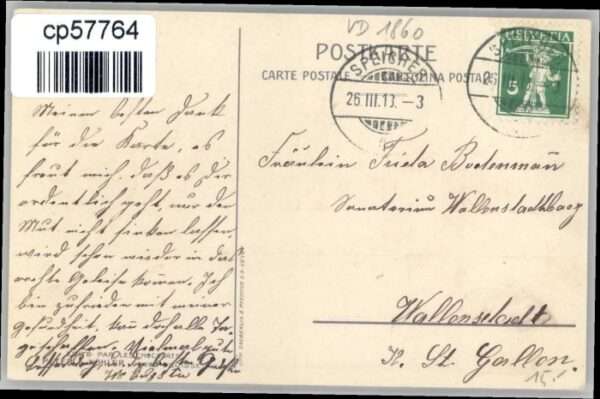 cp57764
VD 1860
POSTKARTE
CARTE POSTALE CARTOLINA POSTALE
HELVETIA
5
SPEICHER
26.III.17. – 3
Meinen besten Dank
für die Karte, es
freut mich, daß es Dir
ordentlich geht, nur den
Mut nicht sinken lassen,
wird schon wieder in das
rechte Geleise kommen. Ich
bin zufrieden mit meiner
Gesundheit, kann doch alle
Vielmal gute
Besserung
Fräulein Frida Bodenmann
Sanatorium Wallenstadtberg
Wallenstadt
Kt. St. Gallen.
15.-